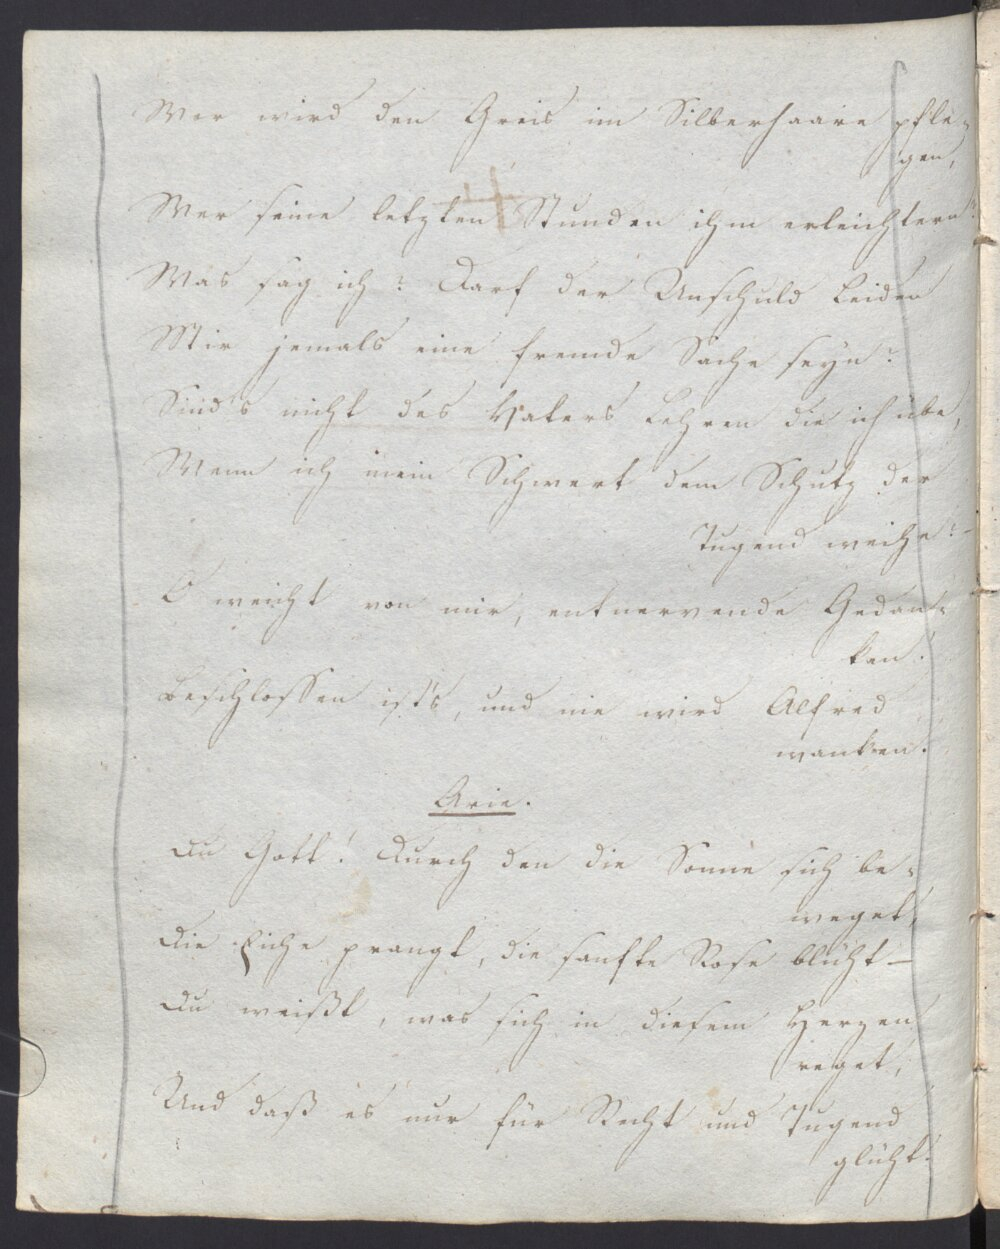 Wer wird den Greis im Silberhaare pfle-
gen,
Wer seine letzten Stunden ihm erleichtern?
Was sag ich? Darf der Unschuld Leiden
Mir jemals eine fremde Sache seyn?
Sind's nicht des Vaters Lehren die ich übe,
Wenn ich mein Schwert dem Schutz der
Tugend weihe? -
O weicht von mir, entnervende Gedan-
ken!
Beschlossen ist's, und nie wird Alfred
wanken!
Arie.
Du Gott! Durch den die Sonne sich be-
weget,
Die Eiche prangt, die sanfte Rose blüht -
Du weißt, was sich in diesem Herzen
reget,
Und daß es nur für Recht und Tugend
glüht!